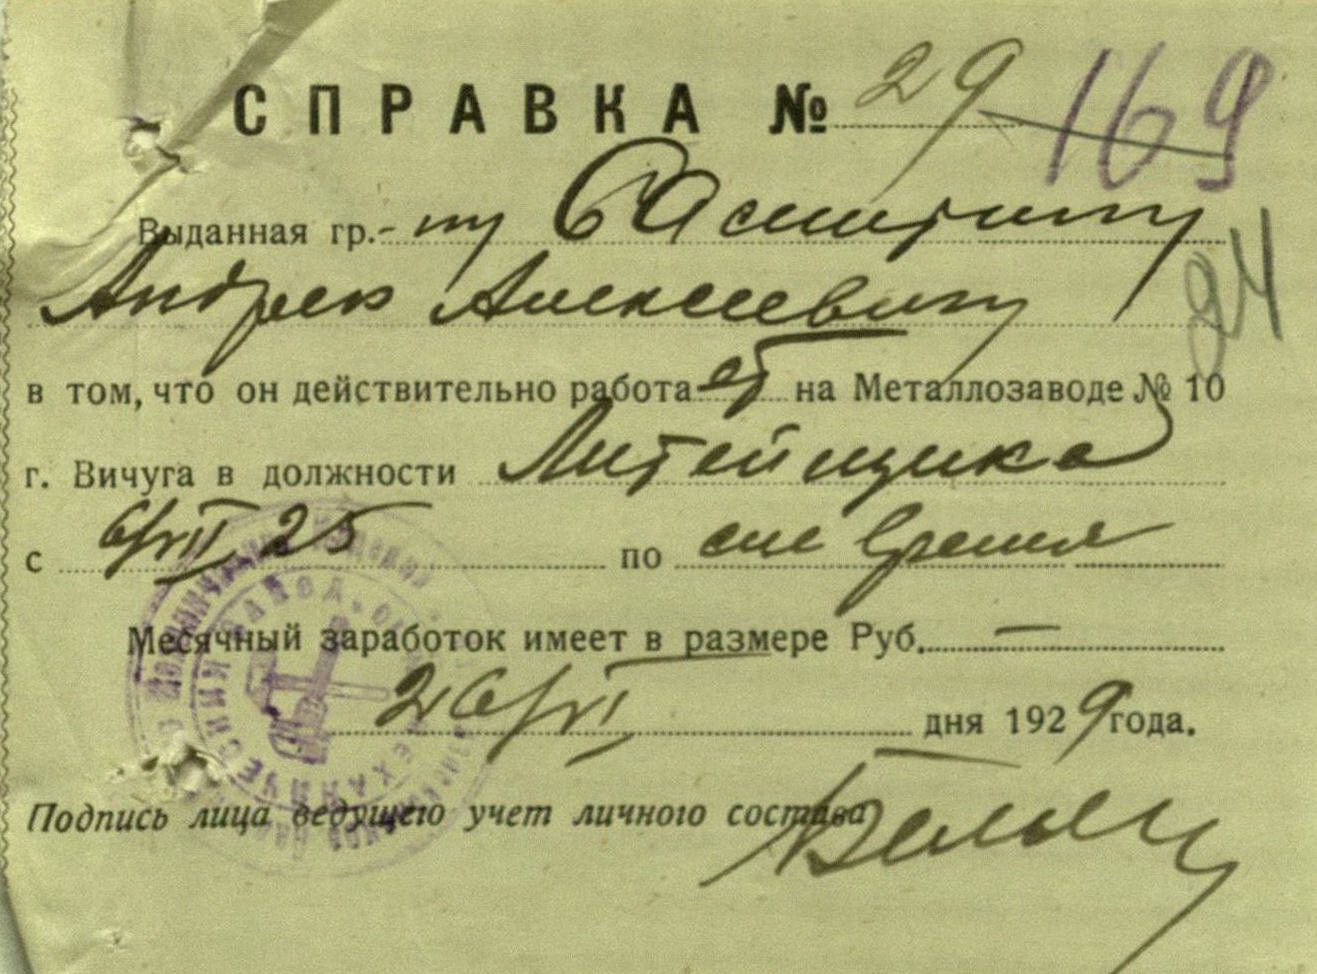 СПРАВКА № 29 169
Выданная гр.-ну
24
Андрею Алексеевичу
в том, что он действительно работает на Металлозаводе № 10
г. Вичуга в должности Литейщика
с 6/VII 25 по сие время
Месячный заработок имеет в размере Руб. —
26/VI дня 1929 года.
Подпись лица ведущего учет личного состава